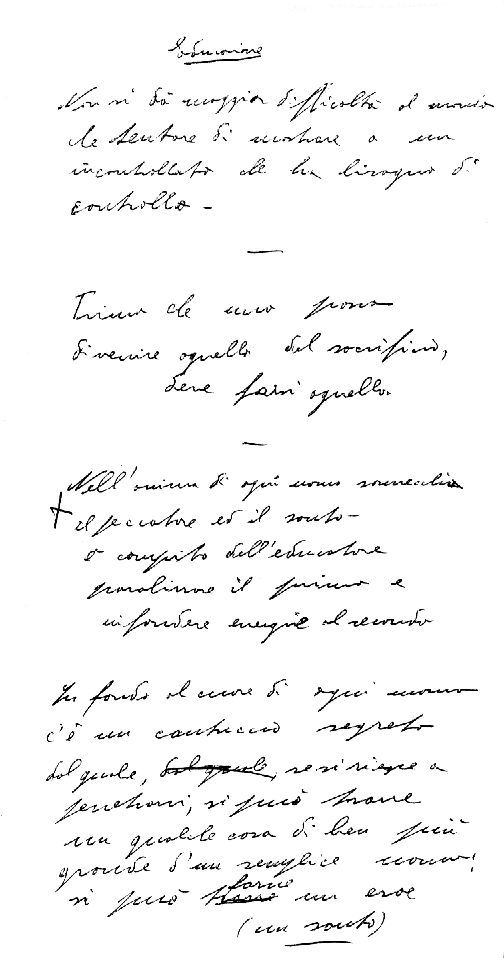 Educazione
Non si dà maggior difficoltà al mondo
che tentare di mostrare a un
incontrollato che ha bisogno di
controllo -
Prima che uno possa
divenire agnello del sacrificio,
deve farsi agnello
Nell'anima di ogni uomo sonnecchia
il peccatore ed il santo -
È compito dell'educatore
paralizzare il primo e
infondere energie al secondo
In fondo al cuore di ogni uomo
c'è un cantuccio segreto
dal quale, dal quale, se si riesce a
penetrarvi, si può trarre
un qualche cosa di ben più
grande d'un semplice uomo:
si può farne un eroe
(un santo)